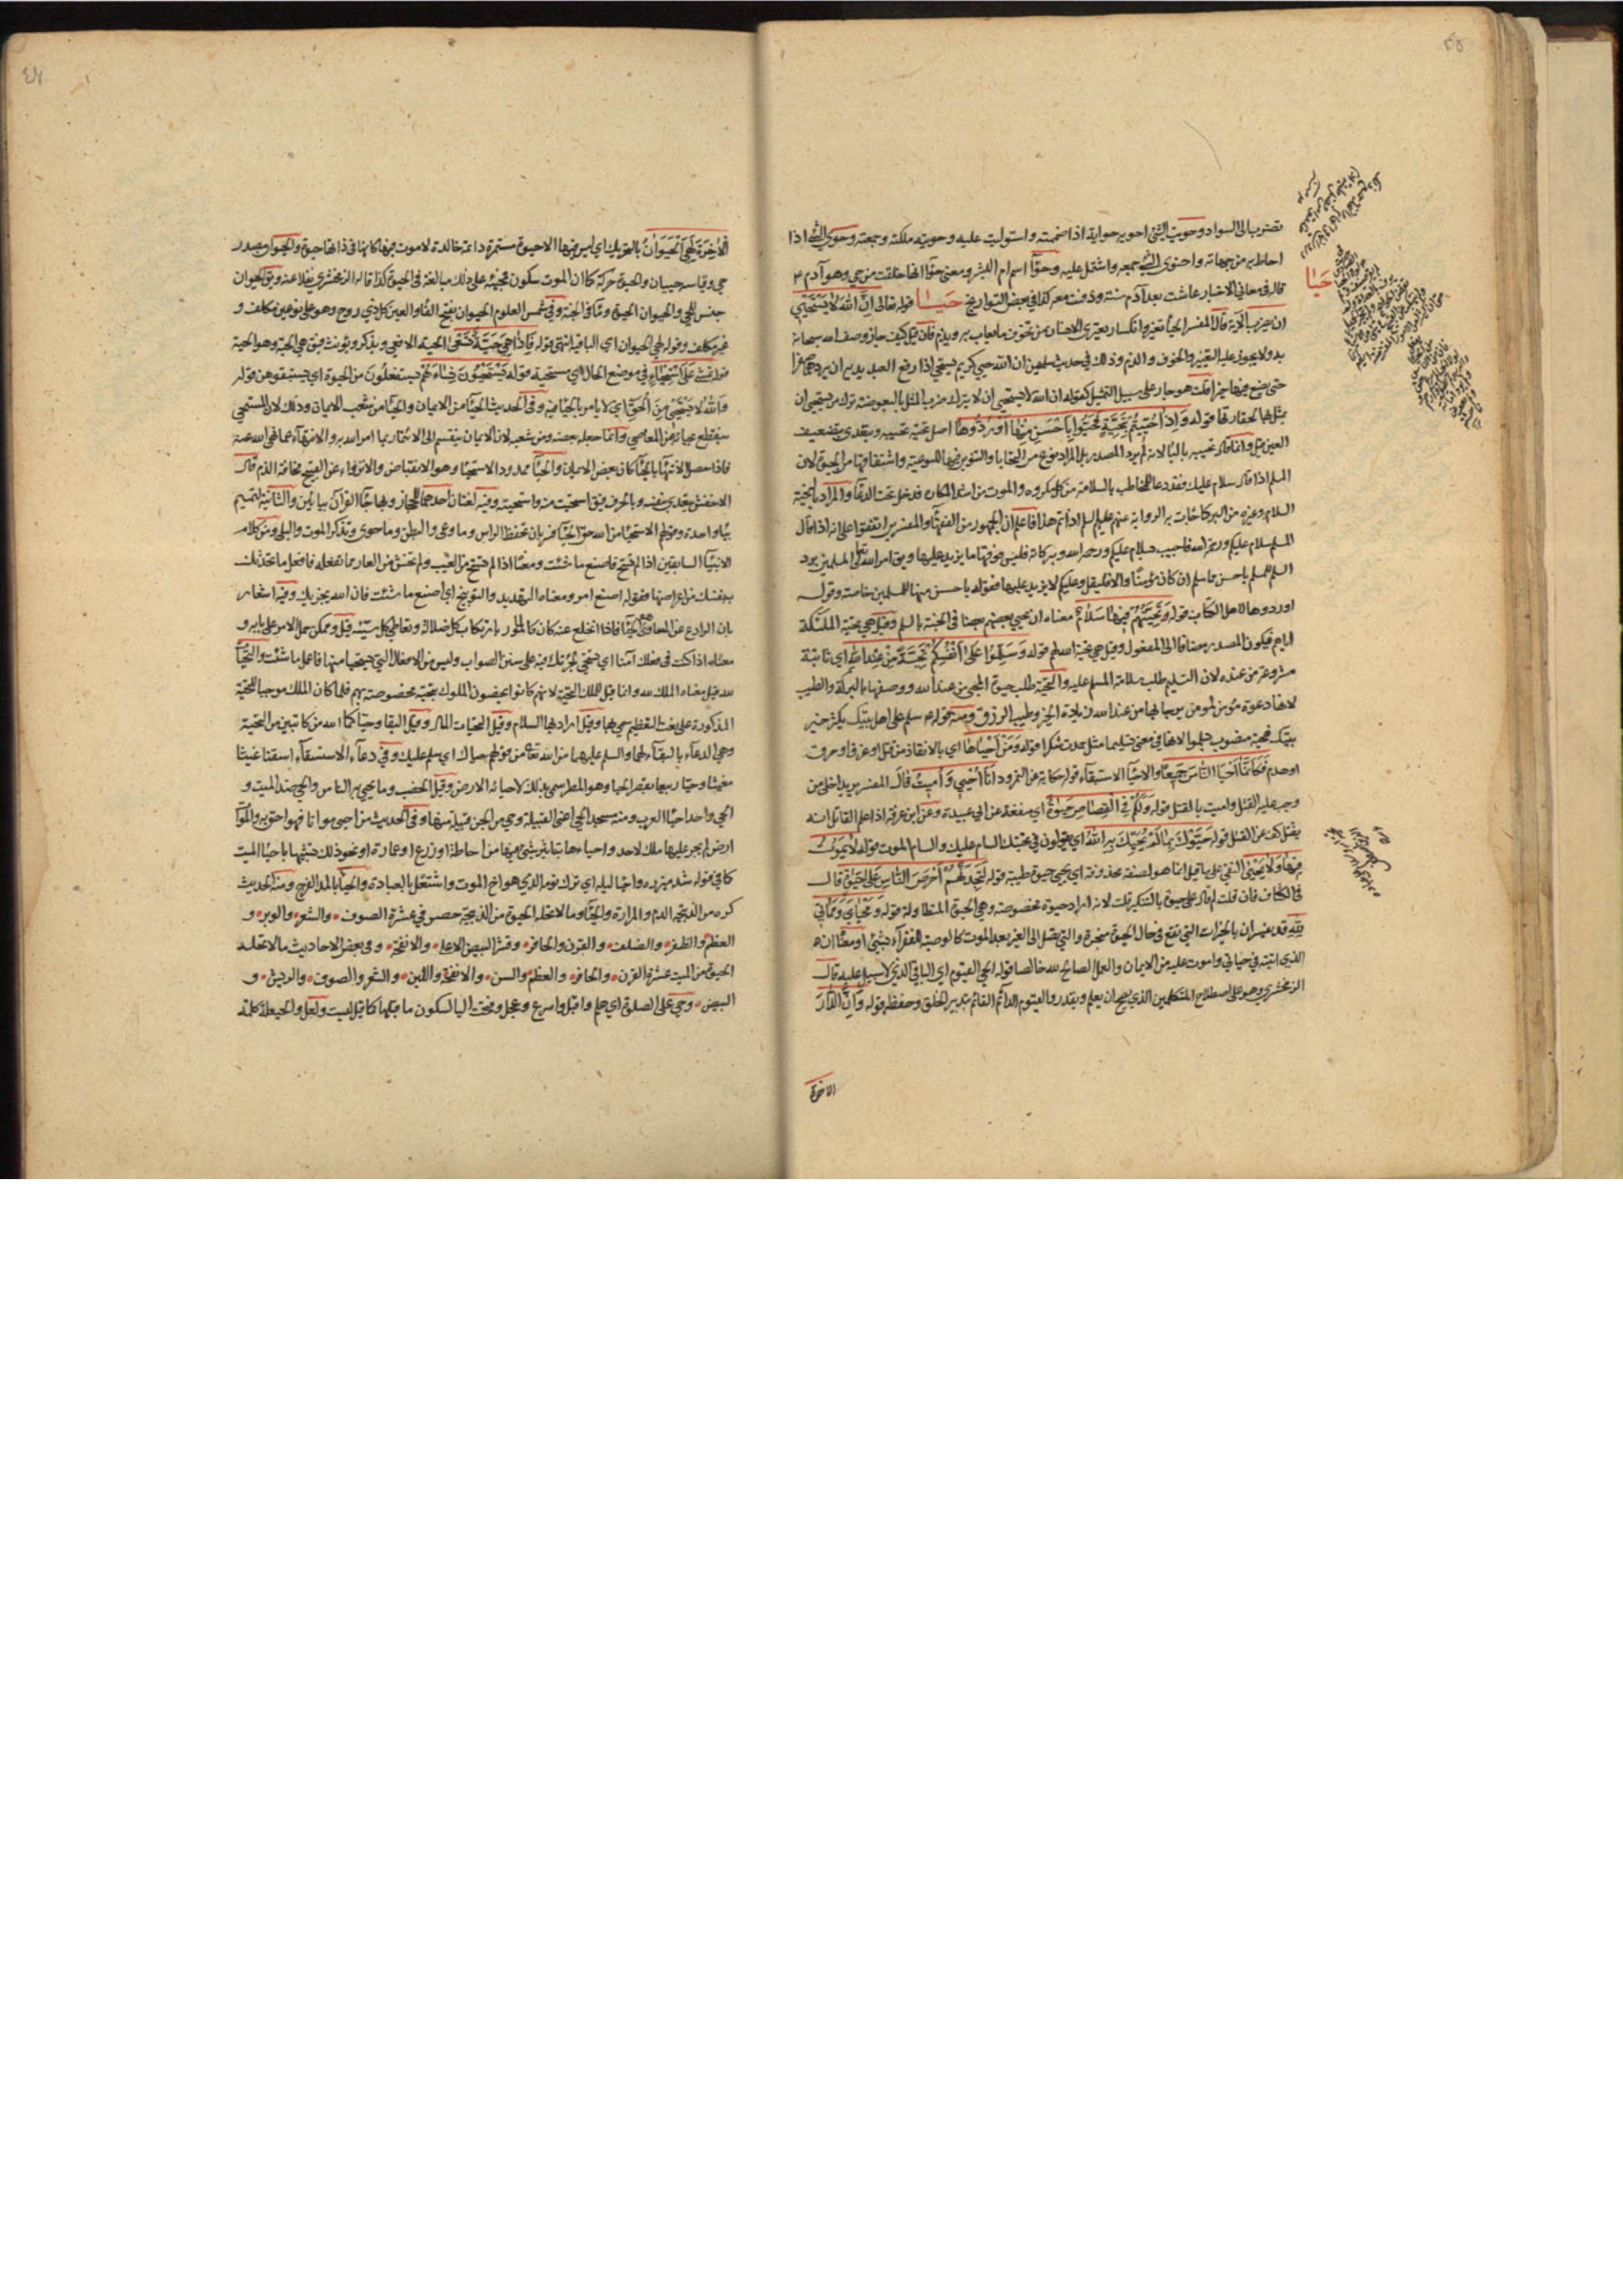 تضرب الى السواد وحويت الشئ احويه حواية اذا ضممته واستوليت عليه وحويته ملكته وجمعته وحوى الشئ اذا
احاط به من جهاته واحتوى الشئ جمعه واشتمل عليه وحوّا اسم ام البشر ومعنى حوّا انها خلقت من حي وهو آدم ع
قاله في معاني الاخبار عاشت بعد آدم سنة ودفنت معه كذا في بعض التواريخ حيا قوله تعالى إنّ الله لا يستحيي
ان يضرب الآية قال المفسر الحياء تغير وانكسار يعتري الانسان من تخوف ما يعاب به ويذم فان قيل كيف جاز وصف الله سبحانه
به ولا يجوز عليه التغير والخوف والذم وذلك في حديث سلمان ان الله حيي كريم يستحيي اذا رفع العبد يديه ان يردهما صفرا
حتى يضع فيهما خيرا قلت هو جار على سبيل التمثيل كقوله ان الله لا يستحيي ان لا يترك ضرب المثل بالبعوضة ترك من يستحيي ان
يمثل بها لحقارتها قوله وَإِذَا حُيِّيتُمْ بِتَحِيَّةٍ فَحَيُّوا بِأَحْسَنَ مِنْهَا أَوْ رُدُّوهَا اصل تحية تحيية ويتعدى بتضعيف
العين قيل وانما قال تحية بالباء لانه لم يرد المصدر بل المراد نوع من التحايا والتنوين فيها للنوعية واشتقاقها من الحيوة لان
المسلم اذا قال سلام عليك فقد دعا للمخاطب بالسلامة من كل مكروه والموت من اشد المكاره فدخل تحت الدعاء والمراد بالتحية
السلام وغيره من البر كما جاءت به الرواية عنهم عليهم السلم اذا تم هذا فاعلم ان الجمهور من الفقهاء والمفسرين اتفقوا على انه اذا قال
المسلم سلام عليكم ورحمة الله فاجيب سلام عليكم ورحمة الله وبركاته فليس فوقها ما يزيد عليها ويق امر الله تعالى المسلمين برد
السلم للمسلم باحسن مما سلم ان كان مؤمنا والا فليقل وعليكم لا يزيد عليها فقوله باحسن منها للمسلمين خاصة وقوله
او ردوها لاهل الكتاب قوله وَتَحِيَّتُهُمْ فِيهَا سَلَامٌ معناه ان يحيي بعضهم بعضا في الجنة بالسلم وقيل هي تحية الملئكة
اياهم فيكون المصدر مضافا الى المفعول وقيل هي تحية الله لهم قوله وَسَلِّمُوا عَلَى أَنْفُسِكُمْ تَحِيَّةً مِنْ عِنْدِ اللهِ اي ثابتة
مشروعة من عنده لان التسليم طلب سلامة المسلم عليه والتحية طلب حيوة المحيي من عند الله ووصفها بالبركة والطيب
لانها دعوة مؤمن لمؤمن يرجا بها من عند الله زيادة الخير وطيب الرزق ومنه قوله ع سلم على اهل بيتك يكثر خير
بيتك فتحية منصوب بسلموا لانها في معنى تسليما مثل حمدت شكرا قوله وَمَنْ أَحْيَاهَا اي بالانقاذ من قتل او غرق او حرق
او هدم فَكَأَنَّمَا أَحْيَا النَّاسَ جَمِيعًا والاحياء الاستبقاء قوله حكاية عن النمرود أَنَا أُحْيِي وَأُمِيتُ قال المفسر يريد اخلي من
وجب عليه القتل واميت بالقتل قوله وَلَكُمْ فِي الْقِصَاصِ حَيٰوةٌ اي منفعة عن ابي عبيدة وعن ابن عرفة اذا علم القاتل انه
يقتل كف عن القتل قوله حَيَّوْكَ بِمَا لَمْ يُحَيِّكَ بِهِ اللهُ اي يقولون في تحيتك السام عليك والسام الموت قوله لَا يَمُوتُ
فِيهَا وَلَا يَحْيَىٰ النفي على ما قيل انما هو لصفة محذوفة اي يحيى حيوة طيبة قوله لَتَجِدَنَّهُمْ أَحْرَصَ النَّاسِ عَلَىٰ حَيٰوةٍ قال
في الكشاف فان قلت لم قال على حيوة بالتنكير قلت لانه اراد حيوة مخصوصة وهي الحيوة المتطاولة قوله وَمَحْيَايَ وَمَمَاتِي
لله قد يفسران بالخيرات التي تقع في حال الحيوة منجزة والتي يصل الى الغير بعد الموت كالوصية للفقراء بشئ او معناه ان
الذي اتيته في حياتي واموت عليه من الايمان والعمل الصالح لله خالصا قوله الحي القيوم اي الباقي الذي لا سبيل عليه قال
الزمخشري وهو على اصطلاح المتكلمين الذي يصح ان يعلم ويقدر والقيوم الدائم القائم بتدبير الخلق وحفظه قوله وَإِنَّ الدَّارَ
الاخرة
الْآخِرَةَ لَهِيَ الْحَيَوَانُ بالتحريك اي ليس فيها الا حيوة مستمرة دائمة خالدة لا موت فيها فكانها في ذاتها حيوة والحيوان مصدر
حي وقياسه حييان والحيوة حركة كما ان الموت سكون فمجيئه على ذلك مبالغة في الحيوة كذا قاله الزمخشري نقلا عنه ويق الحيوان
جنس للحي والحيوان الحيوة وماء في الجنة وفي شمس العلوم الحيوان بفتح الفاء والعين كل ذي روح وهو على نوعين مكلف و
غير مكلف وقوله لهي الحيوان اي الباقية انتهى قوله فَإِذَا هِيَ حَيَّةٌ تَسْعَىٰ الحية الافعى ويذكر ويؤنث فيق هي الحية وهو الحية
قوله تمشي عَلَى اسْتِحْيَاءٍ في موضع الحال اي مستحيية قوله يَسْتَحْيُونَ نِسَاءَكُمْ يستفعلون من الحيوة اي يستبقوهن قوله
وَاللهُ لَا يَسْتَحْيِي مِنَ الْحَقِّ اي لا يامر بالحياء فيه وفي الحديث الحياء من الايمان والحياء من شعب الايمان وذلك لان المستحيي
ينقطع بحيائه عن المعاصي وانما جعله بعضه ومن شعبه لان الايمان ينقسم الى الائتمار بما امر الله به والانتهاء عما نهى الله عنه
فاذا حصل الانتهاء بالحياء كان بعض الايمان والحياء ممدود الاستحياء وهو الانقباض والانزواء عن القبيح مخافة الذم قال
الاخفش يتعدى بنفسه وبالحرف فيق استحيت منه واستحييته وفيه لغتان احدهما للحجاز وبها جاء القرآن بياءين والثانية لتميم
بياء واحدة وقولهم الاستحياء من الله حق الحياء فسر بان تحفظ الراس وما وعى والبطن وما حوى وتذكر الموت والبلى ومن كلام
الانبياء السابقين اذا لم تستح فاصنع ما شئت ومعناه اذا لم تستح من العيب ولم تخش من العار مما تفعله فافعل ما تحدثك
به نفسك من اغراضها فقوله اصنع امر ومعناه التهديد والتوبيخ اي اصنع ما شئت فان الله يجزيك وفيه اشعار
بان الرادع عن المساوئ هو الحياء فاذا انخلع عنه كان كالمأمور بارتكاب كل ضلالة وتعاطي كل سيئة قيل ويمكن حمل الامر على بابه و
معناه اذا كنت في فعلك آمنا اي تستحيي لجريك فيه على سنن الصواب وليس من الافعال التي يستحيا منها فاعمل ما شئت والتحيات
لله قيل معناه الملك لله وانما قيل للملك التحية لانهم كانوا يخصون الملوك بتحية مخصوصة بهم فلما كان الملك موجبا للتحية
المذكورة على نعت التعظيم سمي بها وقيل اراد بها السلام وقيل التحيات لله وقيل البقاء وحياكما الله من كاتبين من التحية
وهي الدعاء بالبقاء لهما والسلم عليهما من الله تعالى من قولهم حياك اي سلم عليك وفي دعاء الاستسقاء اسقنا غيثا
مغيثا وحيا ربيعا بقصر الحيا وهو المطر سمي بذلك لاحيائه الارض وقيل الخصب وما يحيى به الناس والحي ضد الميت و
الحي واحد احياء العرب ومنه مسجد الحي اعني القبيلة وحي من الجن قبيلة منها وفي الحديث من احيى مواتا فهو احق به والموات
ارض لم يجر عليها ملك لاحد واحياءها بتاثير شئ فيها من احاطة او زرع او عمارة او نحو ذلك تشبيها باحياء الميت
كما في قوله شد ميزره واحيا ليله اي ترك نومه الذي هو اخ الموت واشتغل بالعبادة والحياء بالمد الفرج ومنه الحديث
كره من الذبيحة الدم والمرارة والحياء وما لا تحله الحيوة من الذبيحة حصر في عشرة الصوف والشعر والوبر و
العظم والظفر والضلف والقرن والحافر وقشر البيض الاعلى والانفحة وفي بعض الاحاديث ما لا تحله
الحيوة من الميت عشرة القرن والحافر والعظم والسن والانفحة واللبن والشعر والصوف والريش و
البيض وحي على الصلوة اي هلم واقبل واسرع وعجل وفتحت الياء لسكون ما قبلها كما قيل ليت ولعل والحيعلة كلمة